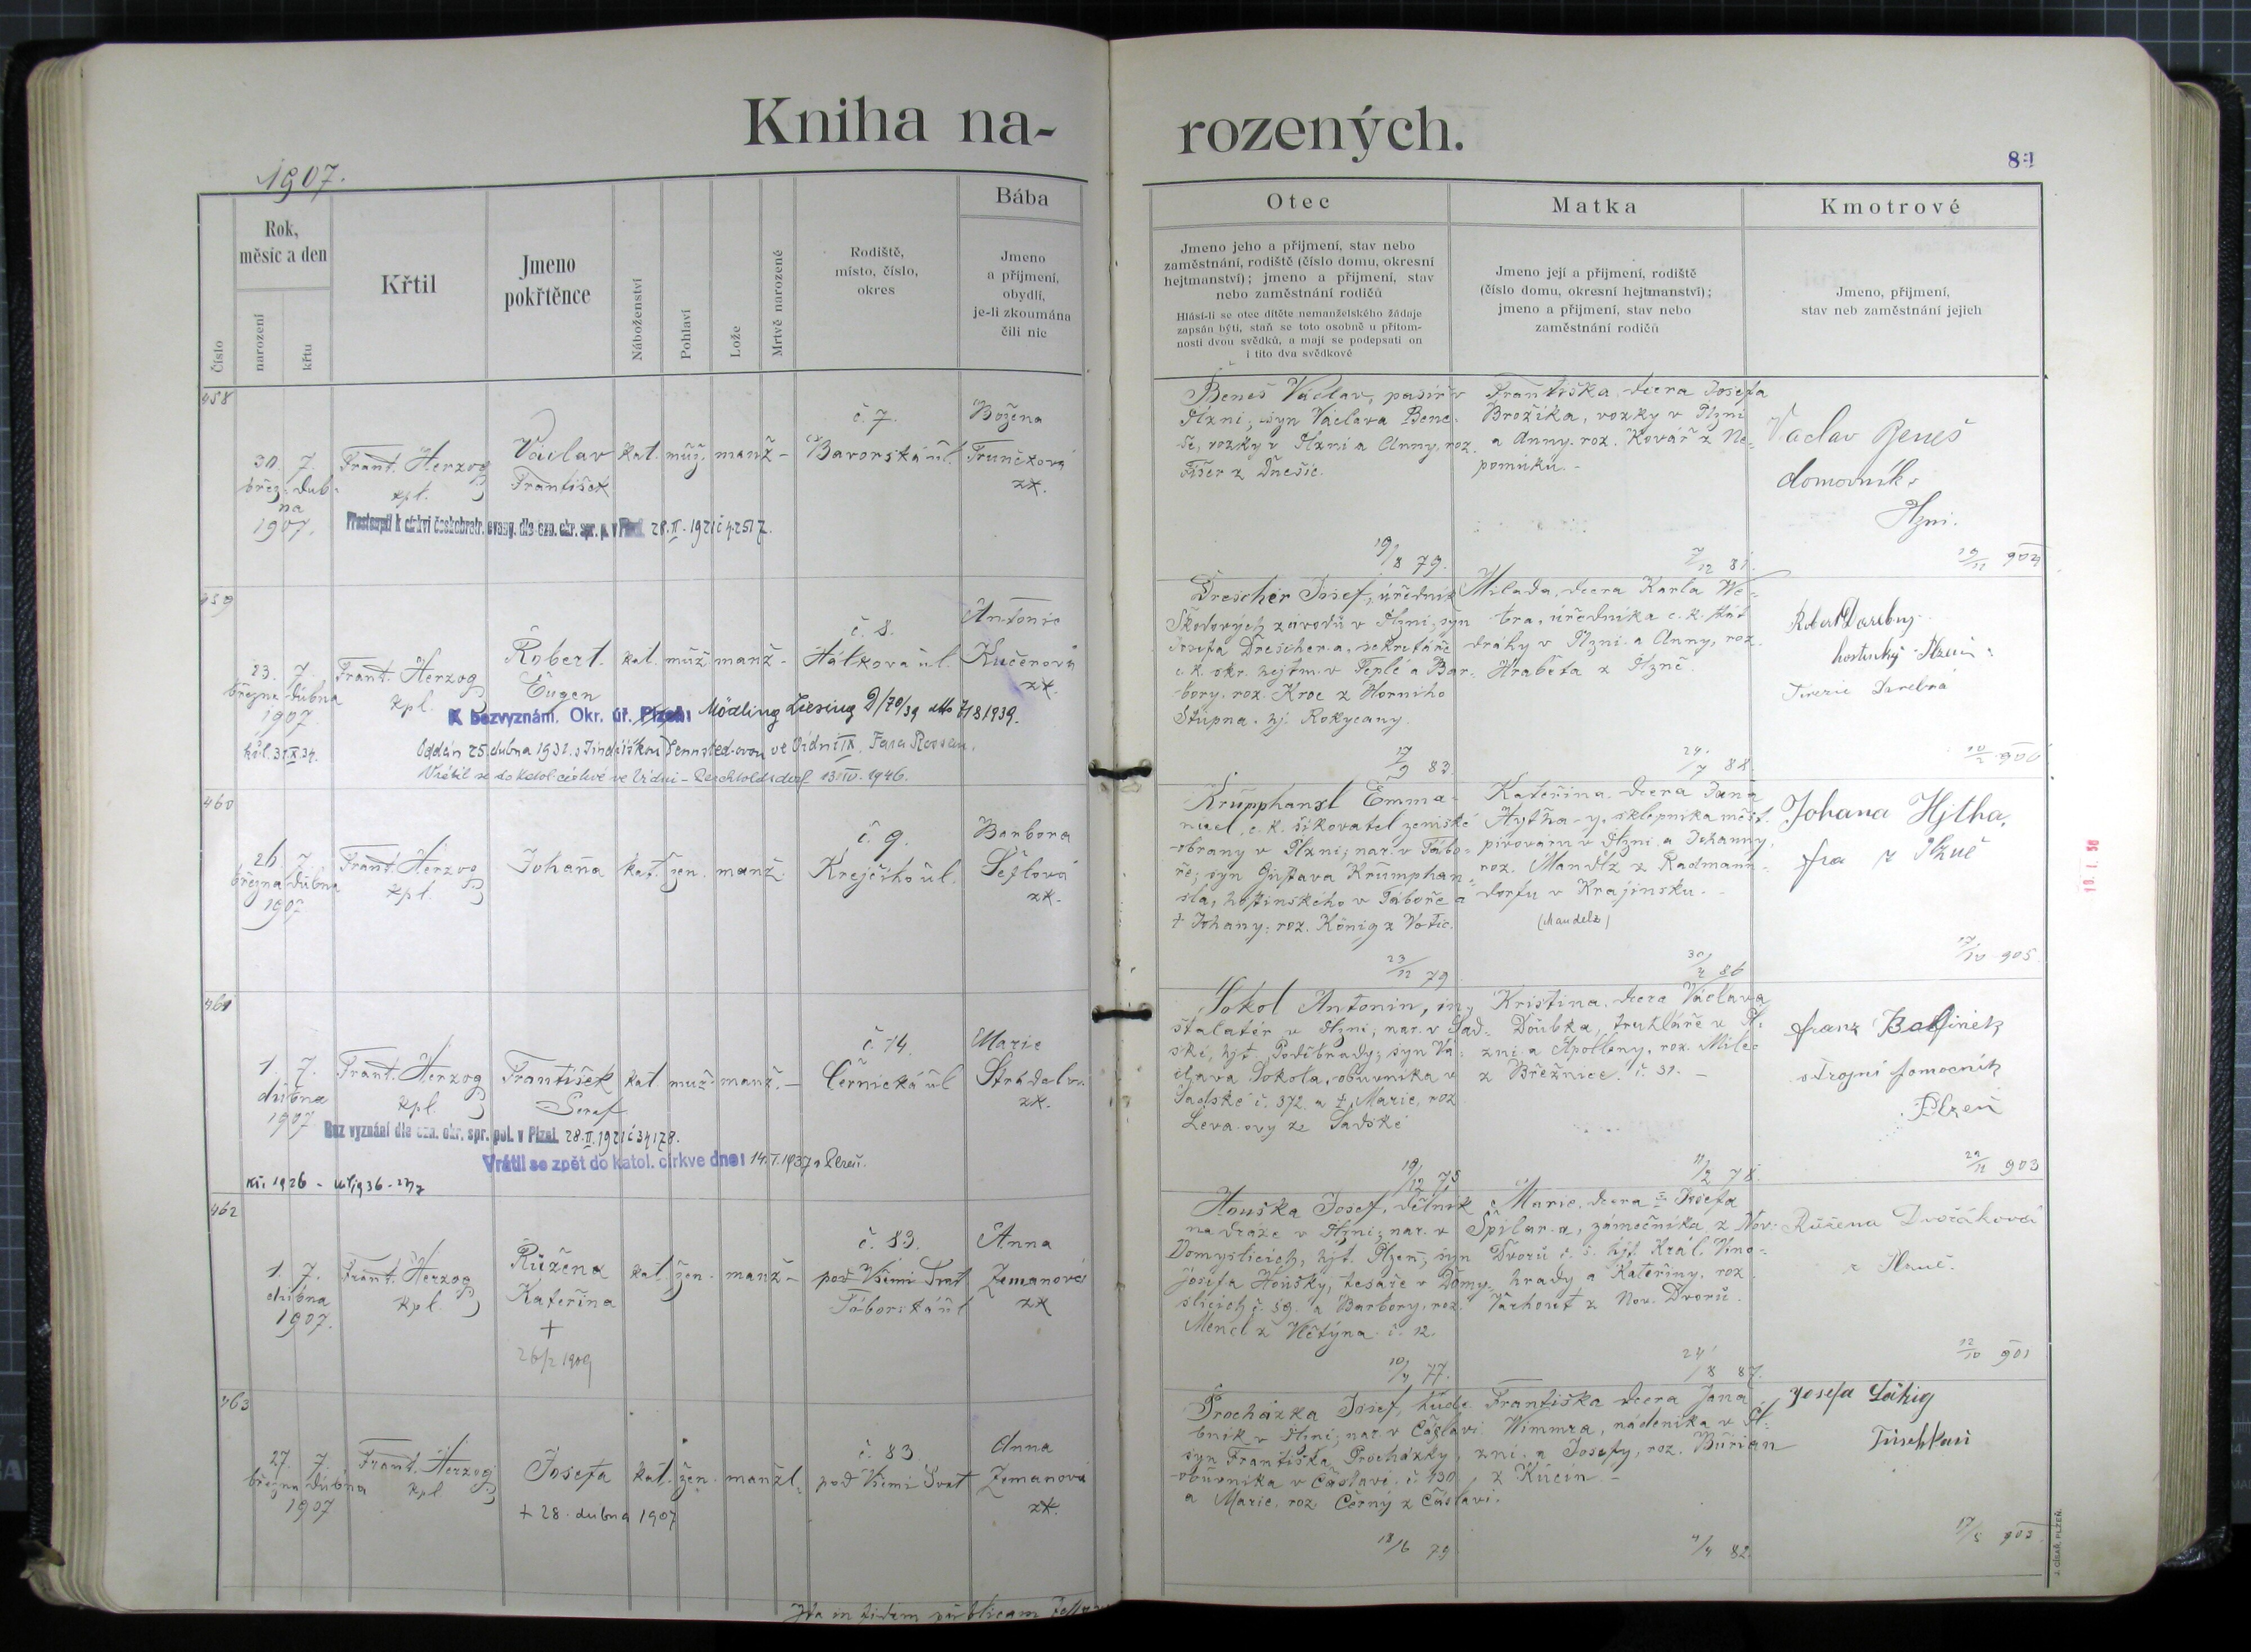 Kniha na-
rozených.
1907.
84
Číslo
Rok,
měsíc a den
narození
křtu
Křtil
Jmeno
pokřtěnce
Náboženství
Pohlaví
Lože
Mrtvě narozené
Rodiště,
místo, číslo,
okres
Bába
Jmeno
a příjmení,
obydlí,
je-li zkoumána
čili nic
Otec
Jmeno jeho a přijmení, stav nebo
zaměstnání, rodiště (číslo domu, okresní
hejtmanství); jmeno a přijmení, stav
nebo zaměstnání rodičů
Hlásí-li se otec dítěte nemanželského žádaje
zapsán býti, staň se toto osobně u přítom-
nosti dvou svědků, a mají se podepsati on
i tito dva svědkové
Matka
Jmeno její a přijmení, rodiště
(číslo domu, okresní hejtmanství);
jmeno a přijmení, stav nebo
zaměstnání rodičů
Kmotrové
Jmeno, přijmení,
stav neb zaměstnání jejich
458
30. 7.
břez. dub-
na
1907.
Frant. Herzog
kpl.
Václav
František
kat. muž. manž -
č. 7.
Bavorská ul.
Božena
Trunečková
zk.
Přestoupil k církvi českobratr. evang. dle ozn. okr. spr. p. v Plzni 28.II.1921 č 42517.
Beneš Václav, pasíř v
Plzni, syn Václava Bene-
še, vozky v Plzni a Anny, roz.
Fišer z Dnešic.
19/8 79.
Františka, dcera Josefa
Brožíka, vozky v Plzni
a Anny, roz. Kovář z Ne-
pomuku. -
7/12 81.
Vaclav Beneš
domovník
Plzni.
19/11 904
459
23. 7.
března dubna
1907
Frant. Herzog
kpl.
Robert
Eugen
kat. muž manž -
č. 8.
Hálkova ul.
Antonie
Kučerová
zk.
K bezvyznání. Okr. úř. Plzeň: Mödling Liesing 9/70/39 dto 7/8 1939.
Oddán 25. dubna 1932 s Jindřiškou ve Vídni IX. Fara Rossau.
Vrátil se do katol. církve ve Vídni - Perchtoldsdorf 13.IV.1946.
Drescher Josef, úředník
Škodových závodů v Plzni, syn
Josefa Drescher-a, sekretáře
c.k. okr. hejtm. v Teplé a Bar-
bory, roz. Kroc z Horního
Stupna, hj. Rokycany.
17/9 83.
Milada, dcera Karla We-
bra, úředníka c.k. stát.
dráhy v Plzni a Anny, roz.
Hraběta z Plzně.
24/7 88.
Robert Darebný
hostinský Plzeň
Terezie Darebná
10/2 906
460
26. 7.
března dubna
1907
Frant. Herzog
kpl.
Johana
kat. žen. manž.
č. 9.
Krejčího ul.
Barbora
Šeflová
zk.
Krupphansl Emma-
nuel, c.k. šikovatel zemské
obrany v Plzni; nar. v Tábo-
ře; syn Gustava Krumphan-
sla, hostinského v Táboře a
† Johany, roz. König z Votic.
23/12 79
Kateřina, dcera Jana
Hytha-y, sklepníka měšť.
pivováru v Plzni a Johanny,
roz. Mandlz z Radmann-
dorfu v Krajinsku. -
(Mandelz)
30/4 86
Johana Hjtha,
z Plzně
17/10 905
461
1. 7.
dubna
1907
Frant. Herzog
kpl.
František
Seraf
kat. muž. manž. -
č. 14.
Černická ul
Marie
zk.
Bez vyznání dle ozn. okr. spr. pol. v Plzni 28.II.1921 č 34178.
Vrátil se zpět do katol. církve dne: 14.I.1937 v Plzni.
Sokol Antonín, in-
štalatér v Plzni, nar. v Sad-
ské, hjt. Poděbrady; syn Vá-
clava Sokola, obuvníka v
Sadské č. 372 a † Marie, roz.
Leva-ovy ze Sadské
19/12 75
Kristina, dcera Václava
Doubka, truhláře v Pl-
zni a Apolleny, roz. Milec
z Březnice. č. 31. -
11/2 78.
strojní pomocník
Plzeň
29/11 903
462
1. 7.
dubna
1907.
Frant. Herzog
kpl.
Růžena
Kateřina
+
26/2 1909
kat. žen. manž -
č. 83.
pod Všemi Svat
Táborská ul
Anna
Zemanová
zk
Houška Josef, dělník
na dráze v Plzni; nar. v
Domyslicích, hjt. Plzeň, syn
Josefa Houšky, tesaře v Domy-
slicích č. 59. a Barbory, roz.
Mencl z Vlčtýna č. 12.
10/4 77.
Marie, dcera † Josefa
Špilar-a, zámečníka z Nov.
Dvorů č. 5. hjt. Král. Vino-
hrady a Kateřiny, roz.
z Nov. Dvorů.
24/8 87.
Růžena Dvořáková
z Plzně.
12/10 901
463
27. 7.
března dubna
1907
Frant. Herzog
kpl.
Josefa
+ 28. dubna 1907
kat. žen. manžl.
č. 83
pod Všemi Svat
Anna
Zemanová
zk.
Procházka Josef, hude-
bník v Plzni; nar. v Čáslavi
syn Františka Procházky,
obuvníka v Čáslavi č. 130
a Marie, roz. Černý z Čáslavi.
18/6 79
Františka dcera Jana
Wimmra, nádeníka v Pl-
zni, a Josefy, roz. Burian
z Kucin -
4/4 82.
Josefa
17/5 903
Ita in fidem publicam
19. I. 50
J. CÍSAŘ, PLZEŇ.